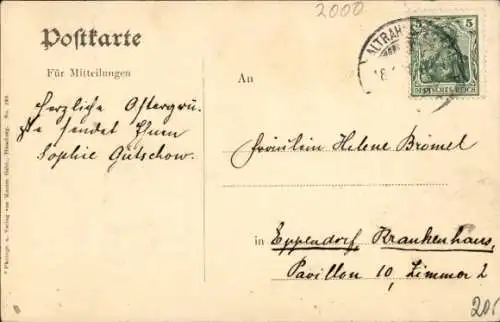 2000
Postkarte
Für Mitteilungen
An
ALTRAH
5
DEUTSCHES REICH
Herzliche Ostergrü-
ße sendet Ihnen
Sophie Gütschow.
Fräulein Helene Brömel
in Eppendorf Krankenhaus,
Pavillon 10, Zimmer 2
20,
Photogr. u. Verlag von Hamburg. No.